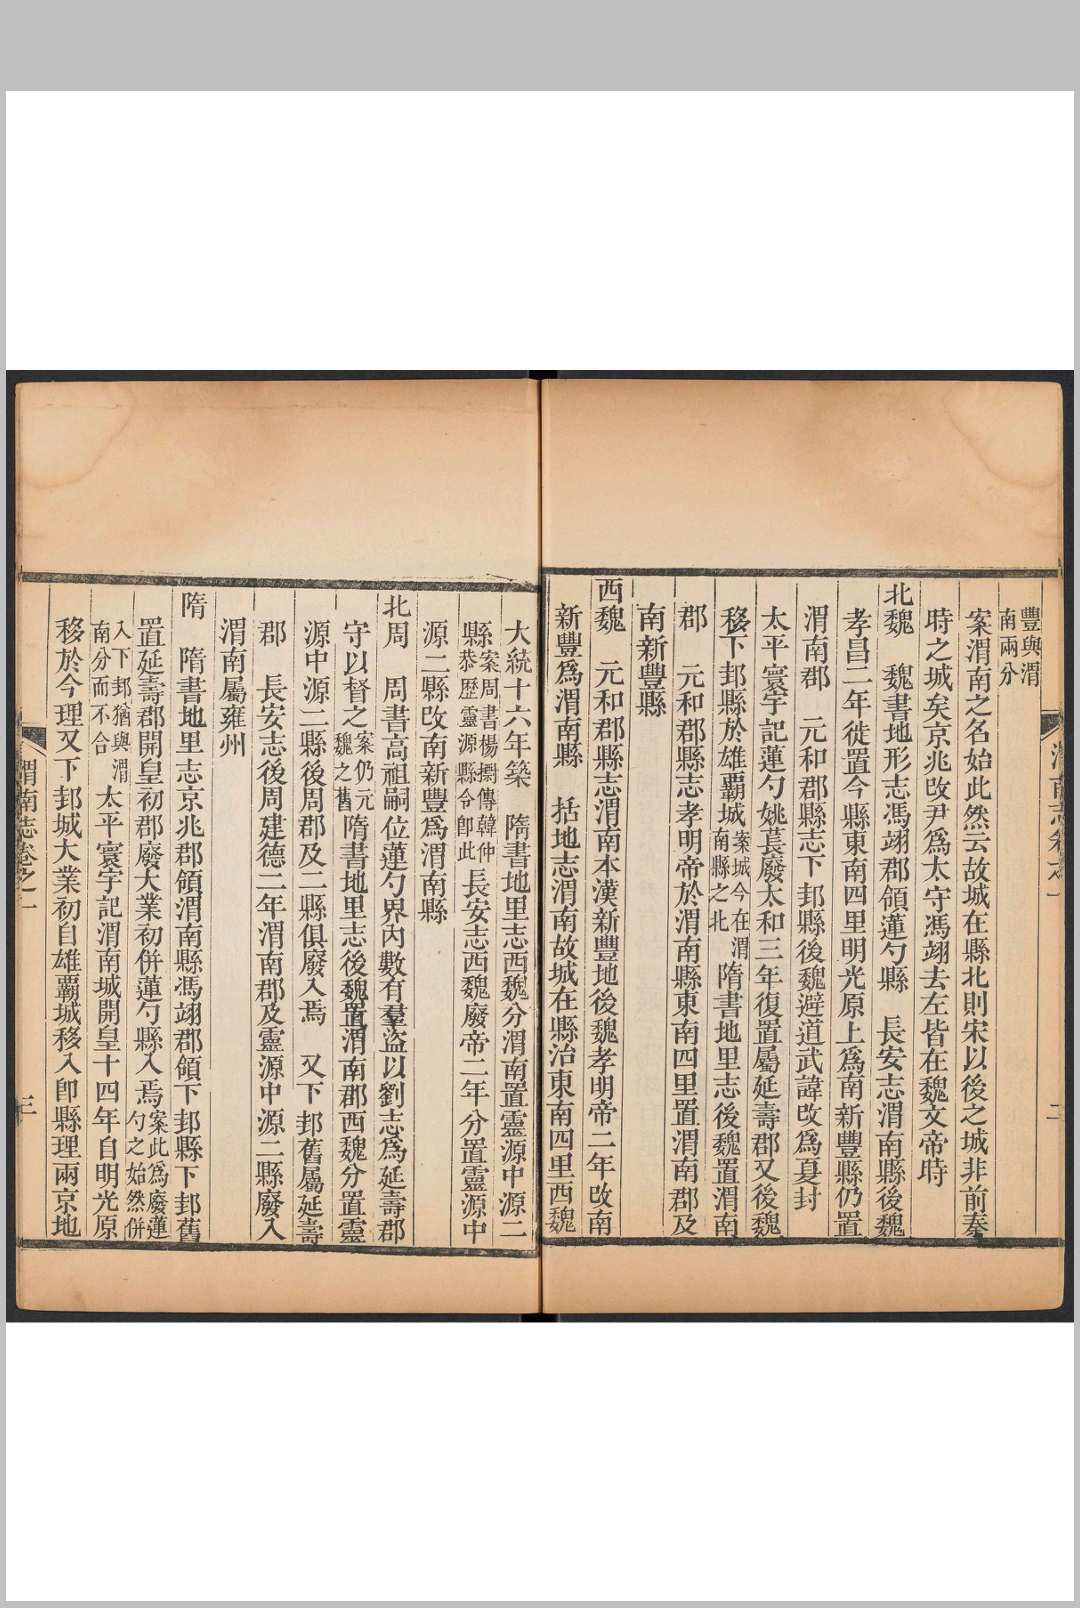 豐與渭
南兩分
案渭南之名始此然云故城在縣北則宋以後之城非前秦
時之城矣京兆改尹爲太守馮翊去左皆在魏文帝時
北魏　魏書地形志馮翊郡領蓮勺縣　長安志渭南縣後魏
孝昌二年徙置今縣東南四里明光原上爲南新豐縣仍置
渭南郡　元和郡縣志下邽縣後魏避道武諱改爲夏封
太平寰宇記蓮勺姚萇廢太和三年復置屬延壽郡又後魏
移下邽縣於雄霸城案城今在渭南縣之北　隋書地里志後魏置渭南
郡　元和郡縣志孝明帝於渭南縣東南四里置渭南郡及
南新豐縣
西魏　元和郡縣志渭南本漢新豐地後魏孝明帝二年改南
新豐爲渭南縣　括地志渭南故城在縣治東南四里西魏
渭南志卷之一
二
大統十六年築　隋書地里志西魏分渭南置靈源中源二
縣案周書楊𢷋傳韓仲恭歷靈源縣令卽此　長安志西魏廢帝二年分置靈源中
源二縣改南新豐爲渭南縣
北周　周書高祖嗣位蓮勺界內數有羣盜以劉志爲延壽郡
守以督之案仍元魏之舊　隋書地里志後魏置渭南郡西魏分置靈
源中源二縣後周郡及二縣俱廢入焉　又下邽舊屬延壽
郡　長安志後周建德二年渭南郡及靈源中源二縣廢入
渭南屬雍州
隋　隋書地里志京兆郡領渭南縣馮翊郡領下邽縣下邽舊
置延壽郡開皇初郡廢大業初併蓮勺縣入焉案此爲廢蓮勺之始然併
入下邽猶與渭南分而不合　太平寰宇記渭南城開皇十四年自明光原
移於今理又下邽城大業初自雄霸城移入卽縣理兩京地
渭南志卷之一
三